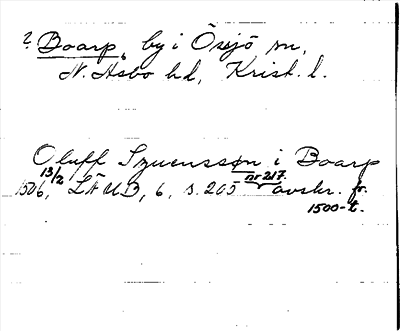 ? Boarp, by i Örsjö sn,
N. Åsbo hd, Krist. l.
Oluff Szuensson i Boarp
1506 13/2, LÄUB, 6, s. 205 nr 217. avskr. fr.
1500-t.